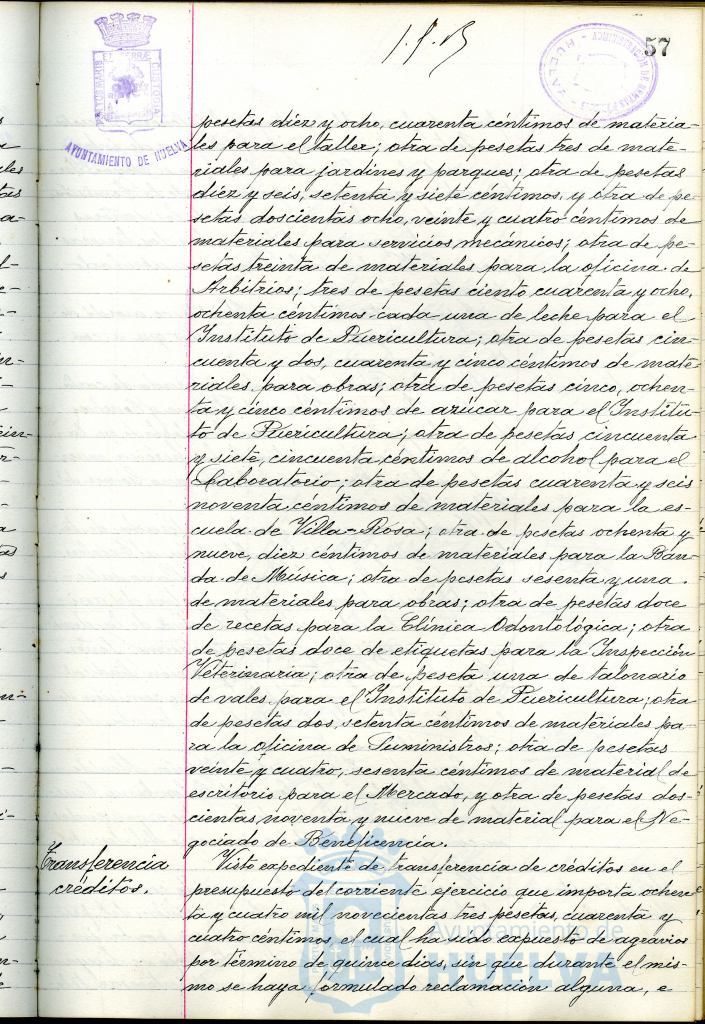 57
AYUNTAMIENTO DE HUELVA
pesetas diez y ocho, cuarenta céntimos de materia-
les para el taller; otra de pesetas tres de mate-
riales para jardines y parques; otra de pesetas
diez y seis, setenta y siete céntimos, y otra de pe-
setas doscientas ocho, veinte y cuatro céntimos de
materiales para servicios mecánicos; otra de pe-
setas treinta de materiales para la oficina de
Arbitrios; tres de pesetas ciento cuarenta y ocho,
ochenta céntimos cada una de leche para el
Instituto de Puericultura; otra de pesetas cin-
cuenta y dos, cuarenta y cinco céntimos de mate-
riales para obras; otra de pesetas cinco, ochen-
ta y cinco céntimos de azúcar para el Institu-
to de Puericultura; otra de pesetas cincuenta
y siete, cincuenta céntimos de alcohol para el
Laboratorio; otra de pesetas cuarenta y seis
noventa céntimos de materiales para la es-
cuela de Villa-Rosa; otra de pesetas ochenta y
nueve, diez céntimos de materiales para la Ban-
da de Música; otra de pesetas sesenta y una
de materiales para obras; otra de pesetas doce
de recetas para la Clínica Odontológica; otra
de pesetas doce de etiquetas para la Inspección
Veterinaria; otra de peseta una de talonario
de vales para el Instituto de Puericultura; otra
de pesetas dos, setenta céntimos de materiales pa-
ra la oficina de Suministros; otra de pesetas
veinte y cuatro, sesenta céntimos de material de
escritorio para el Mercado, y otra de pesetas dos-
cientas noventa y nueve de material para el Ne-
gociado de Beneficencia.
Transferencia
créditos.
Visto expediente de transferencia de créditos en el
presupuesto del corriente ejercicio que importa ochen-
ta y cuatro mil novecientas tres pesetas, cuarenta y
cuatro céntimos, el cual ha sido expuesto de agravios
por término de quince dias, sin que durante el mis-
mo se haya formulado reclamación alguna, e
Ayuntamiento de
HUELVA